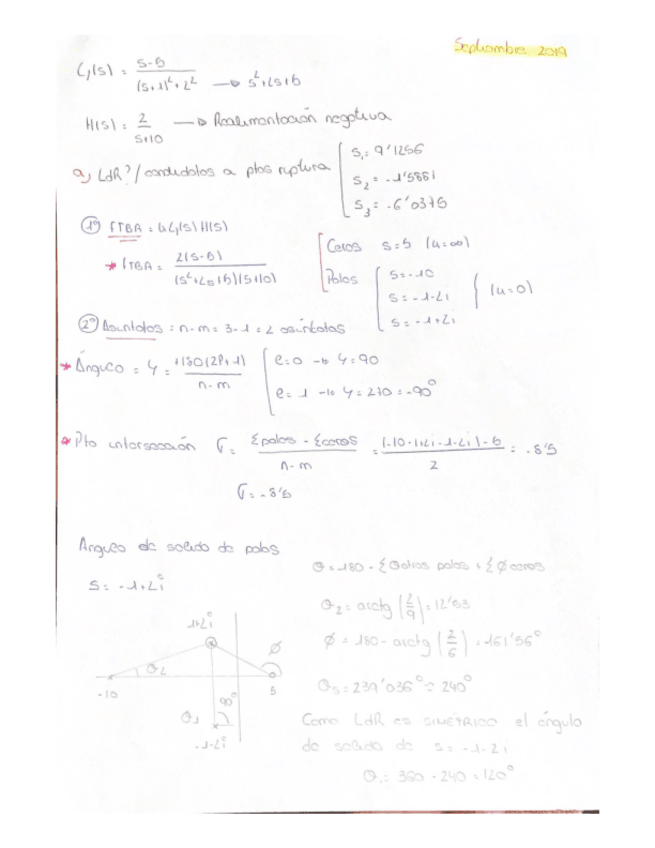 Septiembre 2019
G(s) = s-5 / (s+1)²+2² → s²+2s+5
H(s) = 2 / s+10 → Realimentación negativa
a) LdR?/ candidatos a ptos ruptura { s₁= 9'1256
s₂= -1'5881
s₃= -6'0375
1º FTBA = k G(s) H(s)
* FTBA = 2(s-5) / (s²+2s+5)(s+10)
[ Ceros s=5 (k=∞)
Polos { s=-10
s=-1-2i } (k=0)
s=-1+2i
2º Asíntotas = n-m = 3-1 = 2 asíntotas
* Ángulo = φ = ±180(2ρ+1) / n-m { ρ=0 → φ=90
ρ=1 → φ=270=-90°
* Pto intersección σ = Σpolos - Σceros / n-m = (-10-1+2i-1-2i)-5 / 2 = -8'5
σ = -8'5
Angulo de salida de polos
s = -1+2i
-1+2i
θ₂
-10
90°
θ₁
-1-2i
Ø
5
θ = 180 - Σθotros polos + ΣØceros
θ₂ = arctg (2/9) = 12'53
Ø = 180 - arctg (2/6) = 161'56°
θs = 239'036° ≈ 240°
Como LdR es SIMÉTRICO el ángulo
de salida de s = -1-2i
θ = 360 - 240 = 120°